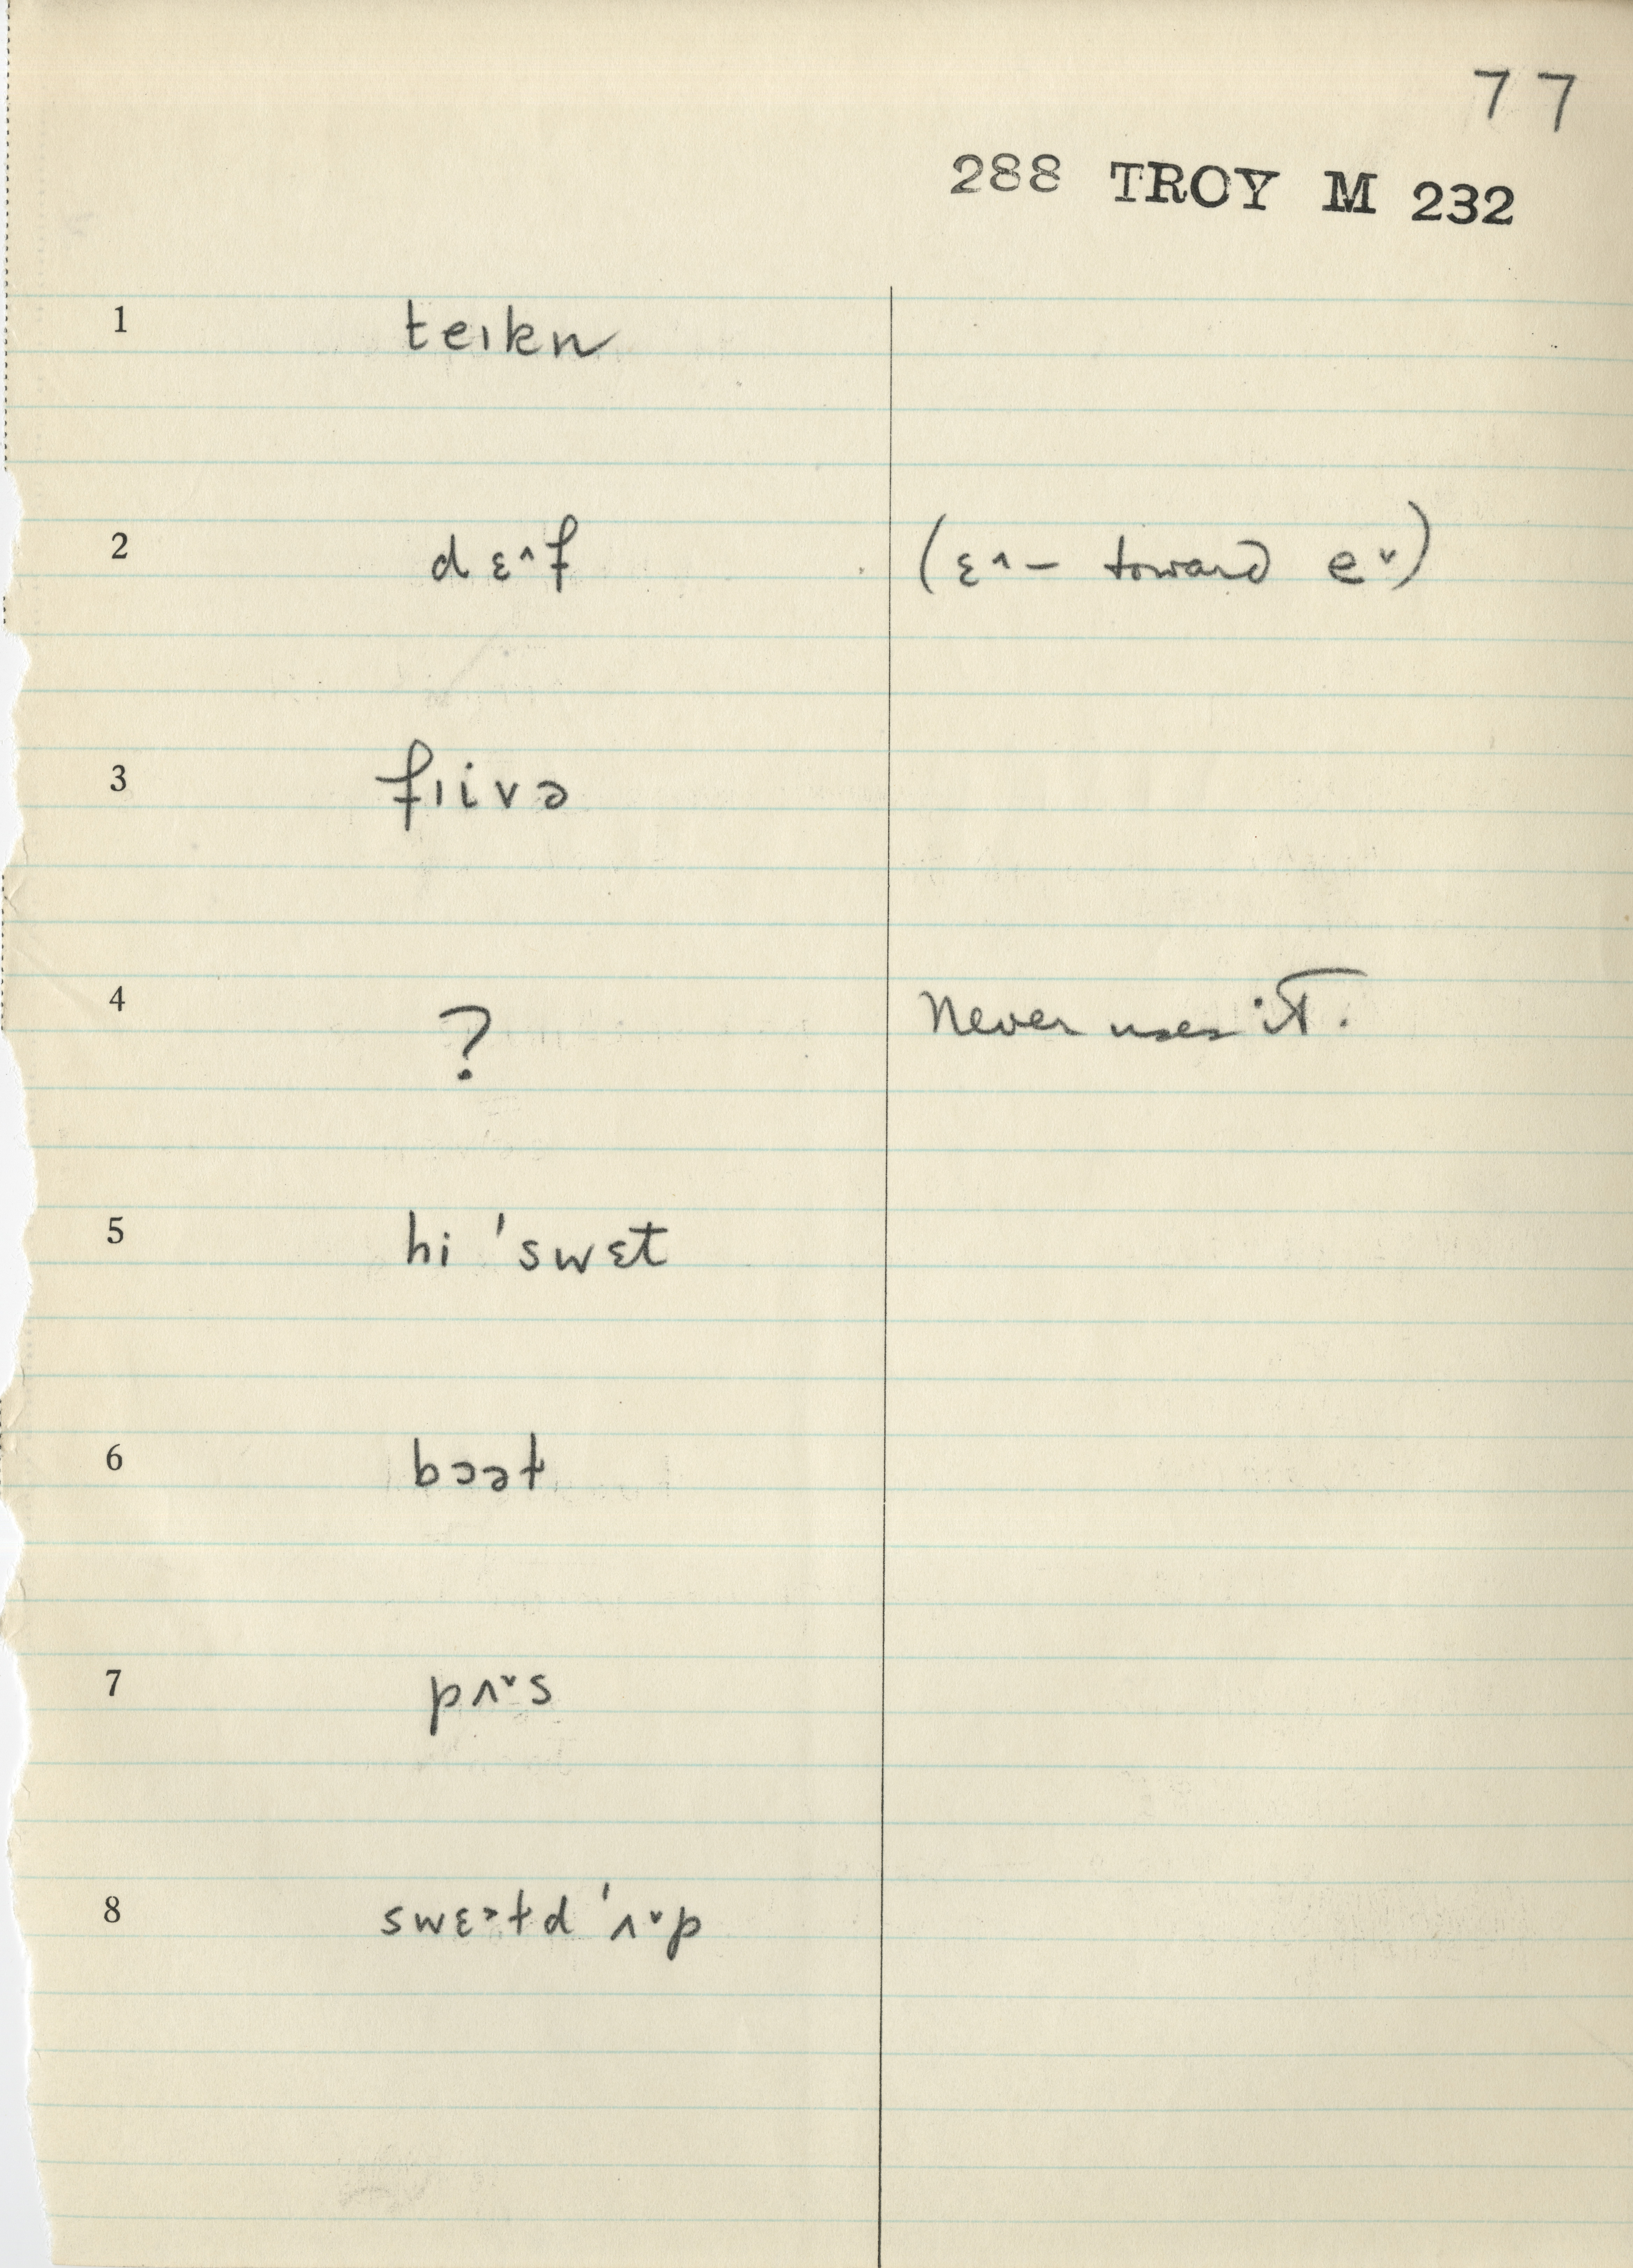 77
288 TROY M 232
1 teıkn
2 dɛ^f (ɛ^– toward e˅)
3 fıivə
4 ? Never uses it.
5 hi 'swɛt
6 bɔət
7 pʌ˅s
8 swɛ>td 'ʌ˅p